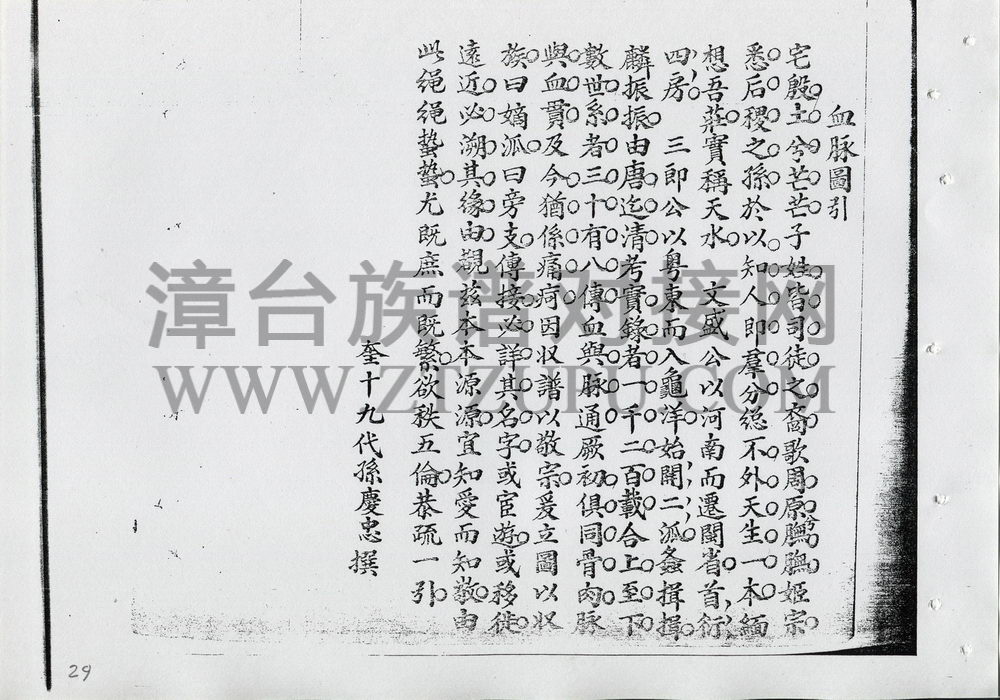 血脉圖引
宅殷土兮芒芒子姓皆司徒之裔歌周原兮膴膴姬宗
悉后稷之孫於以知人即羣分総不外天生一本緬
想吾莊實稱天水 文盛公以河南而遷閩省首衍
四房 三郎公以粤東而入龜洋始開二派螽揖揖
麟振振由唐迄清考實錄者一千二百載合上至下
數世系者三十有八傳血與脉通厥初俱同骨肉脉
與血貫及今猶係痛疴因収譜以敬宗爰立圖以収
族曰嫡派曰旁支傳接必詳其名字或宦遊或移徙
遠近必溯其緣由覩兹本本源源宜知愛而知敬由
此绳绳蟄蟄尤既庶而既繁欲秩五倫恭疏一引
奎十九代孫慶忠撰
漳台族谱对接网
WWW.ZTZUPU.COM
29